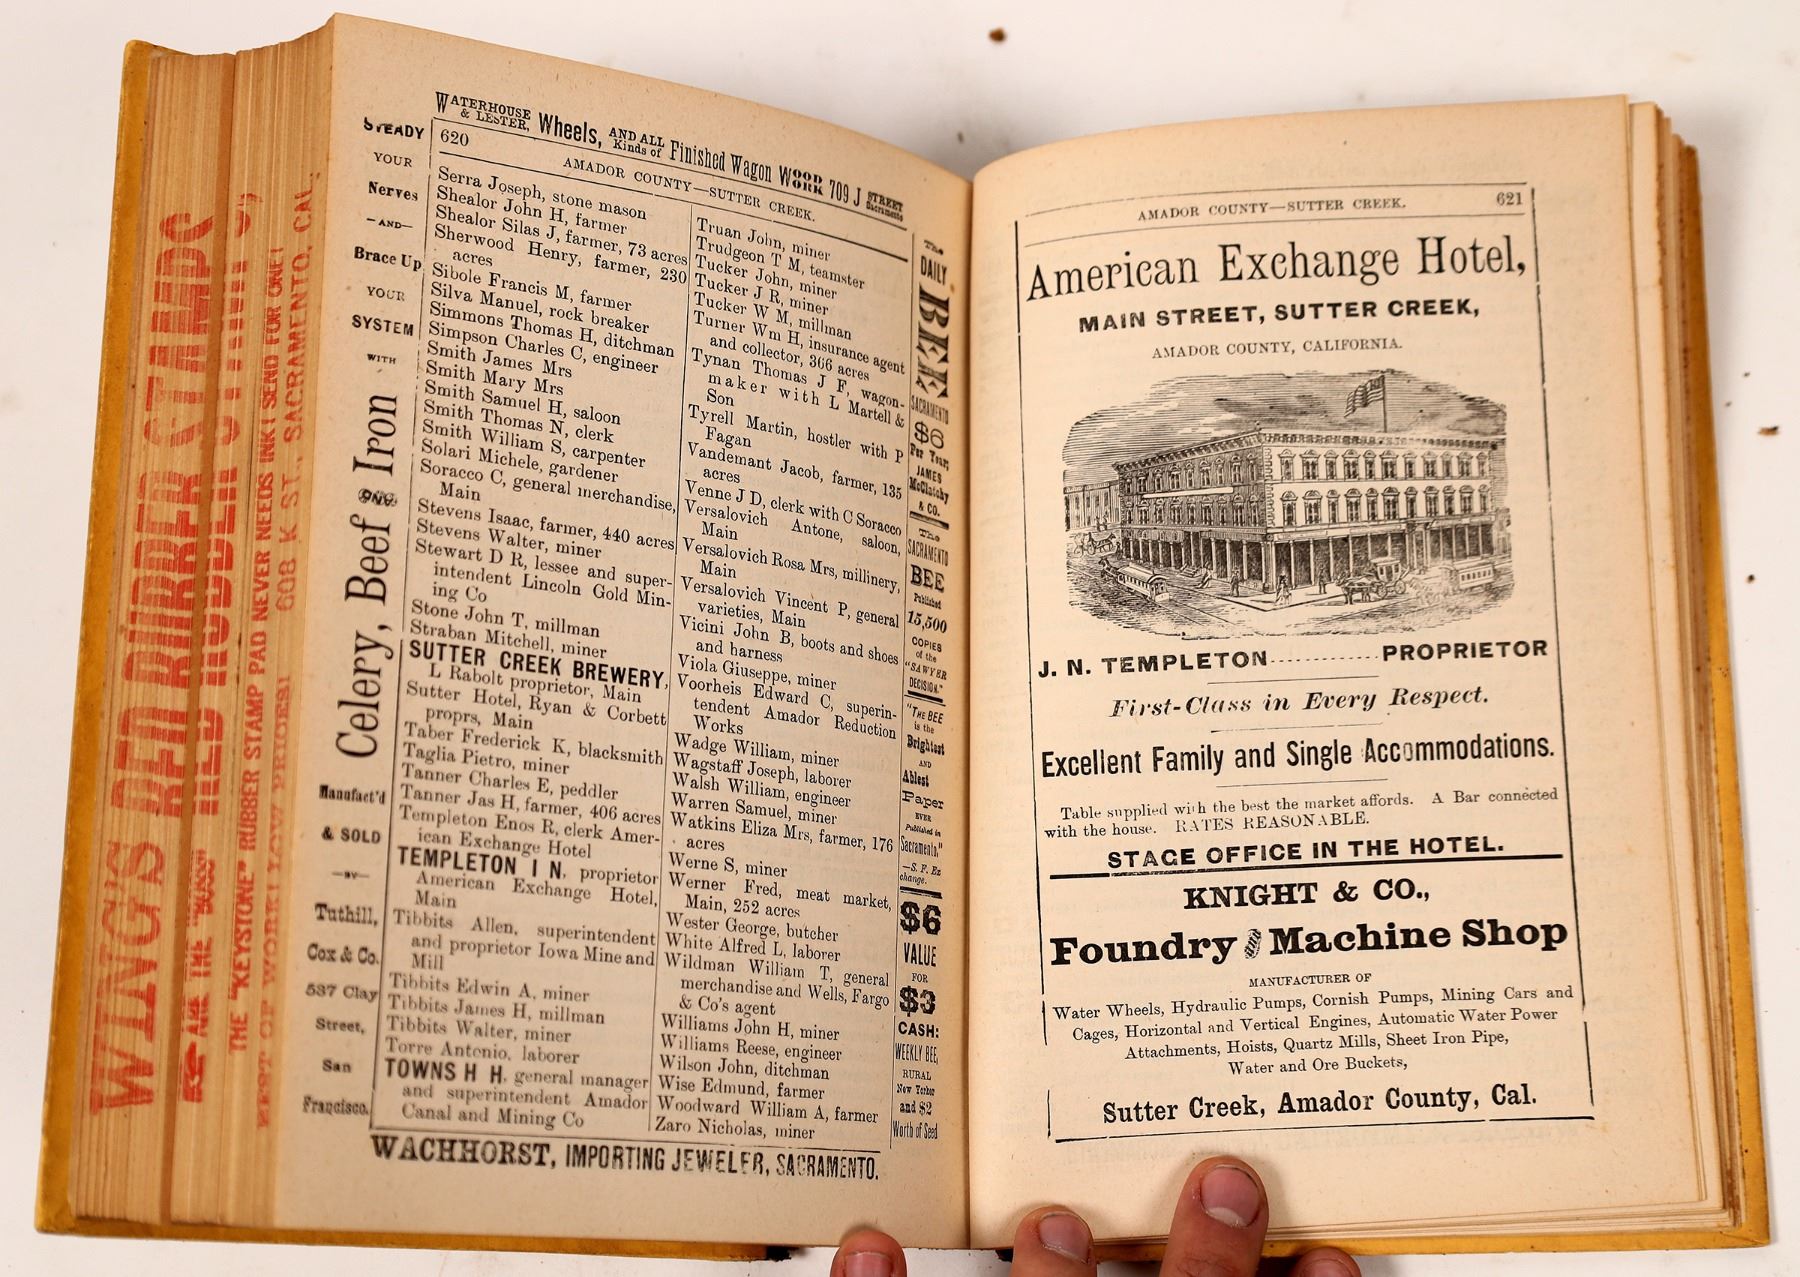 WING'S RED RUBBER STAMPS
ARE THE "BOSS"
THE "KEYSTONE" RUBBER STAMP PAD NEVER NEEDS INK! SEND FOR ONE!
608 K ST., SACRAMENTO, CAL.
WATERHOUSE & LESTER, Wheels, AND ALL Kinds of Finished Wagon WOOD WORK 709 J STREET Sacramento
STEADY
YOUR
Nerves
—AND—
Brace Up
YOUR
SYSTEM
WITH
Celery, Beef and Iron
Manufact'd
& SOLD
—BY—
Tuthill,
Cox & Co.
537 Clay
Street,
San
Francisco.
620
AMADOR COUNTY—SUTTER CREEK.
Serra Joseph, stone mason
Shealor John H, farmer
Shealor Silas J, farmer, 73 acres
Sherwood Henry, farmer, 230
acres
Sibole Francis M, farmer
Silva Manuel, rock breaker
Simmons Thomas H, ditchman
Simpson Charles C, engineer
Smith James Mrs
Smith Mary Mrs
Smith Samuel H, saloon
Smith Thomas N, clerk
Smith William S, carpenter
Solari Michele, gardener
Soracco C, general merchandise,
Main
Stevens Isaac, farmer, 440 acres
Stevens Walter, miner
Stewart D R, lessee and super-
intendent Lincoln Gold Min-
ing Co
Stone John T, millman
Straban Mitchell, miner
SUTTER CREEK BREWERY,
L Rabolt proprietor, Main
Sutter Hotel, Ryan & Corbett
proprs, Main
Taber Frederick K, blacksmith
Taglia Pietro, miner
Tanner Charles E, peddler
Tanner Jas H, farmer, 406 acres
Templeton Enos R, clerk Amer-
ican Exchange Hotel
TEMPLETON I N, proprietor
American Exchange Hotel,
Main
Tibbits Allen, superintendent
and proprietor Iowa Mine and
Mill
Tibbits Edwin A, miner
Tibbits James H, millman
Tibbits Walter, miner
Torre Antonio, laborer
TOWNS H H, general manager
and superintendent Amador
Canal and Mining Co
Truan John, miner
Trudgeon T M, teamster
Tucker John, miner
Tucker J R, miner
Tucker W M, millman
Turner Wm H, insurance agent
and collector, 366 acres
Tynan Thomas J F, wagon-
maker with L Martell &
Son
Tyrell Martin, hostler with P
Fagan
Vandemant Jacob, farmer, 135
acres
Venne J D, clerk with C Soracco
Versalovich Antone, saloon,
Main
Versalovich Rosa Mrs, millinery,
Main
Versalovich Vincent P, general
varieties, Main
Vicini John B, boots and shoes
and harness
Viola Giuseppe, miner
Voorheis Edward C, superin-
tendent Amador Reduction
Works
Wadge William, miner
Wagstaff Joseph, laborer
Walsh William, engineer
Warren Samuel, miner
Watkins Eliza Mrs, farmer, 176
acres
Werne S, miner
Werner Fred, meat market,
Main, 252 acres
Wester George, butcher
White Alfred L, laborer
Wildman William T, general
merchandise and Wells, Fargo
& Co's agent
Williams John H, miner
Williams Reese, engineer
Wilson John, ditchman
Wise Edmund, farmer
Woodward William A, farmer
Zaro Nicholas, miner
The
DAILY
BEE
SACRAMENTO
$6
Per Year;
JAMES
McClatchy
& CO.
The
SACRAMENTO
BEE
Published
15,500
COPIES
of the
"SAWYER
DECISION."
"THE BEE
is the
Brightest
AND
Ablest
Paper
EVER
Published in
Sacramento."
—S. F. Ex
change.
$6
VALUE
FOR
$3
CASH:
WEEKLY BEE,
RURAL
New Yorker
and $2
Worth of Seed
WACHHORST, IMPORTING JEWELER, SACRAMENTO.
AMADOR COUNTY—SUTTER CREEK. 621
American Exchange Hotel,
MAIN STREET, SUTTER CREEK,
AMADOR COUNTY, CALIFORNIA.
J. N. TEMPLETON............PROPRIETOR
First-Class in Every Respect.
Excellent Family and Single Accommodations.
Table supplied with the best the market affords. A Bar connected
with the house. RATES REASONABLE.
STAGE OFFICE IN THE HOTEL.
KNIGHT & CO.,
Foundry and Machine Shop
MANUFACTURER OF
Water Wheels, Hydraulic Pumps, Cornish Pumps, Mining Cars and
Cages, Horizontal and Vertical Engines, Automatic Water Power
Attachments, Hoists, Quartz Mills, Sheet Iron Pipe,
Water and Ore Buckets,
Sutter Creek, Amador County, Cal.